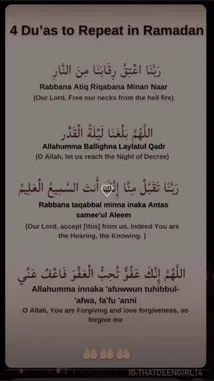 4 Du'as to Repeat in Ramadan
رَبَّنَا اعْتِقْ رِقَابَنَا مِنَ النَّارِ
Rabbana Atiq Riqabana Minan Naar
(Our Lord, Free our necks from the hell fire)
اللَّهُمَّ بَلِّغْنَا لَيْلَةُ الْقَدْرِ
Allahumma Ballighna Laylatul Qadr
(O Allah, let us reach the Night of Decree)
رَبَّنَا تَقَبَّلْ مِنَّا إِنَّكَ أَنتَ السَّمِيعُ الْعَلِيْمُ
Rabbana taqabbal minna inaka Antas
samee'ul Aleem
(Our Lord, accept [this] from us. Indeed You are
the Hearing, the Knowing. )
اللَّهُمَّ إِنَّكَ عَفُوٌّ تُحِبُّ الْعَفْوَ فَاعْفُ عَنِّي
Allahumma innaka 'afuwwun tuhibbul-
'afwa, fa'fu 'anni
O Allah, You are Forgiving and love forgiveness, so
forgive me
IG:THATDEENGIRL14